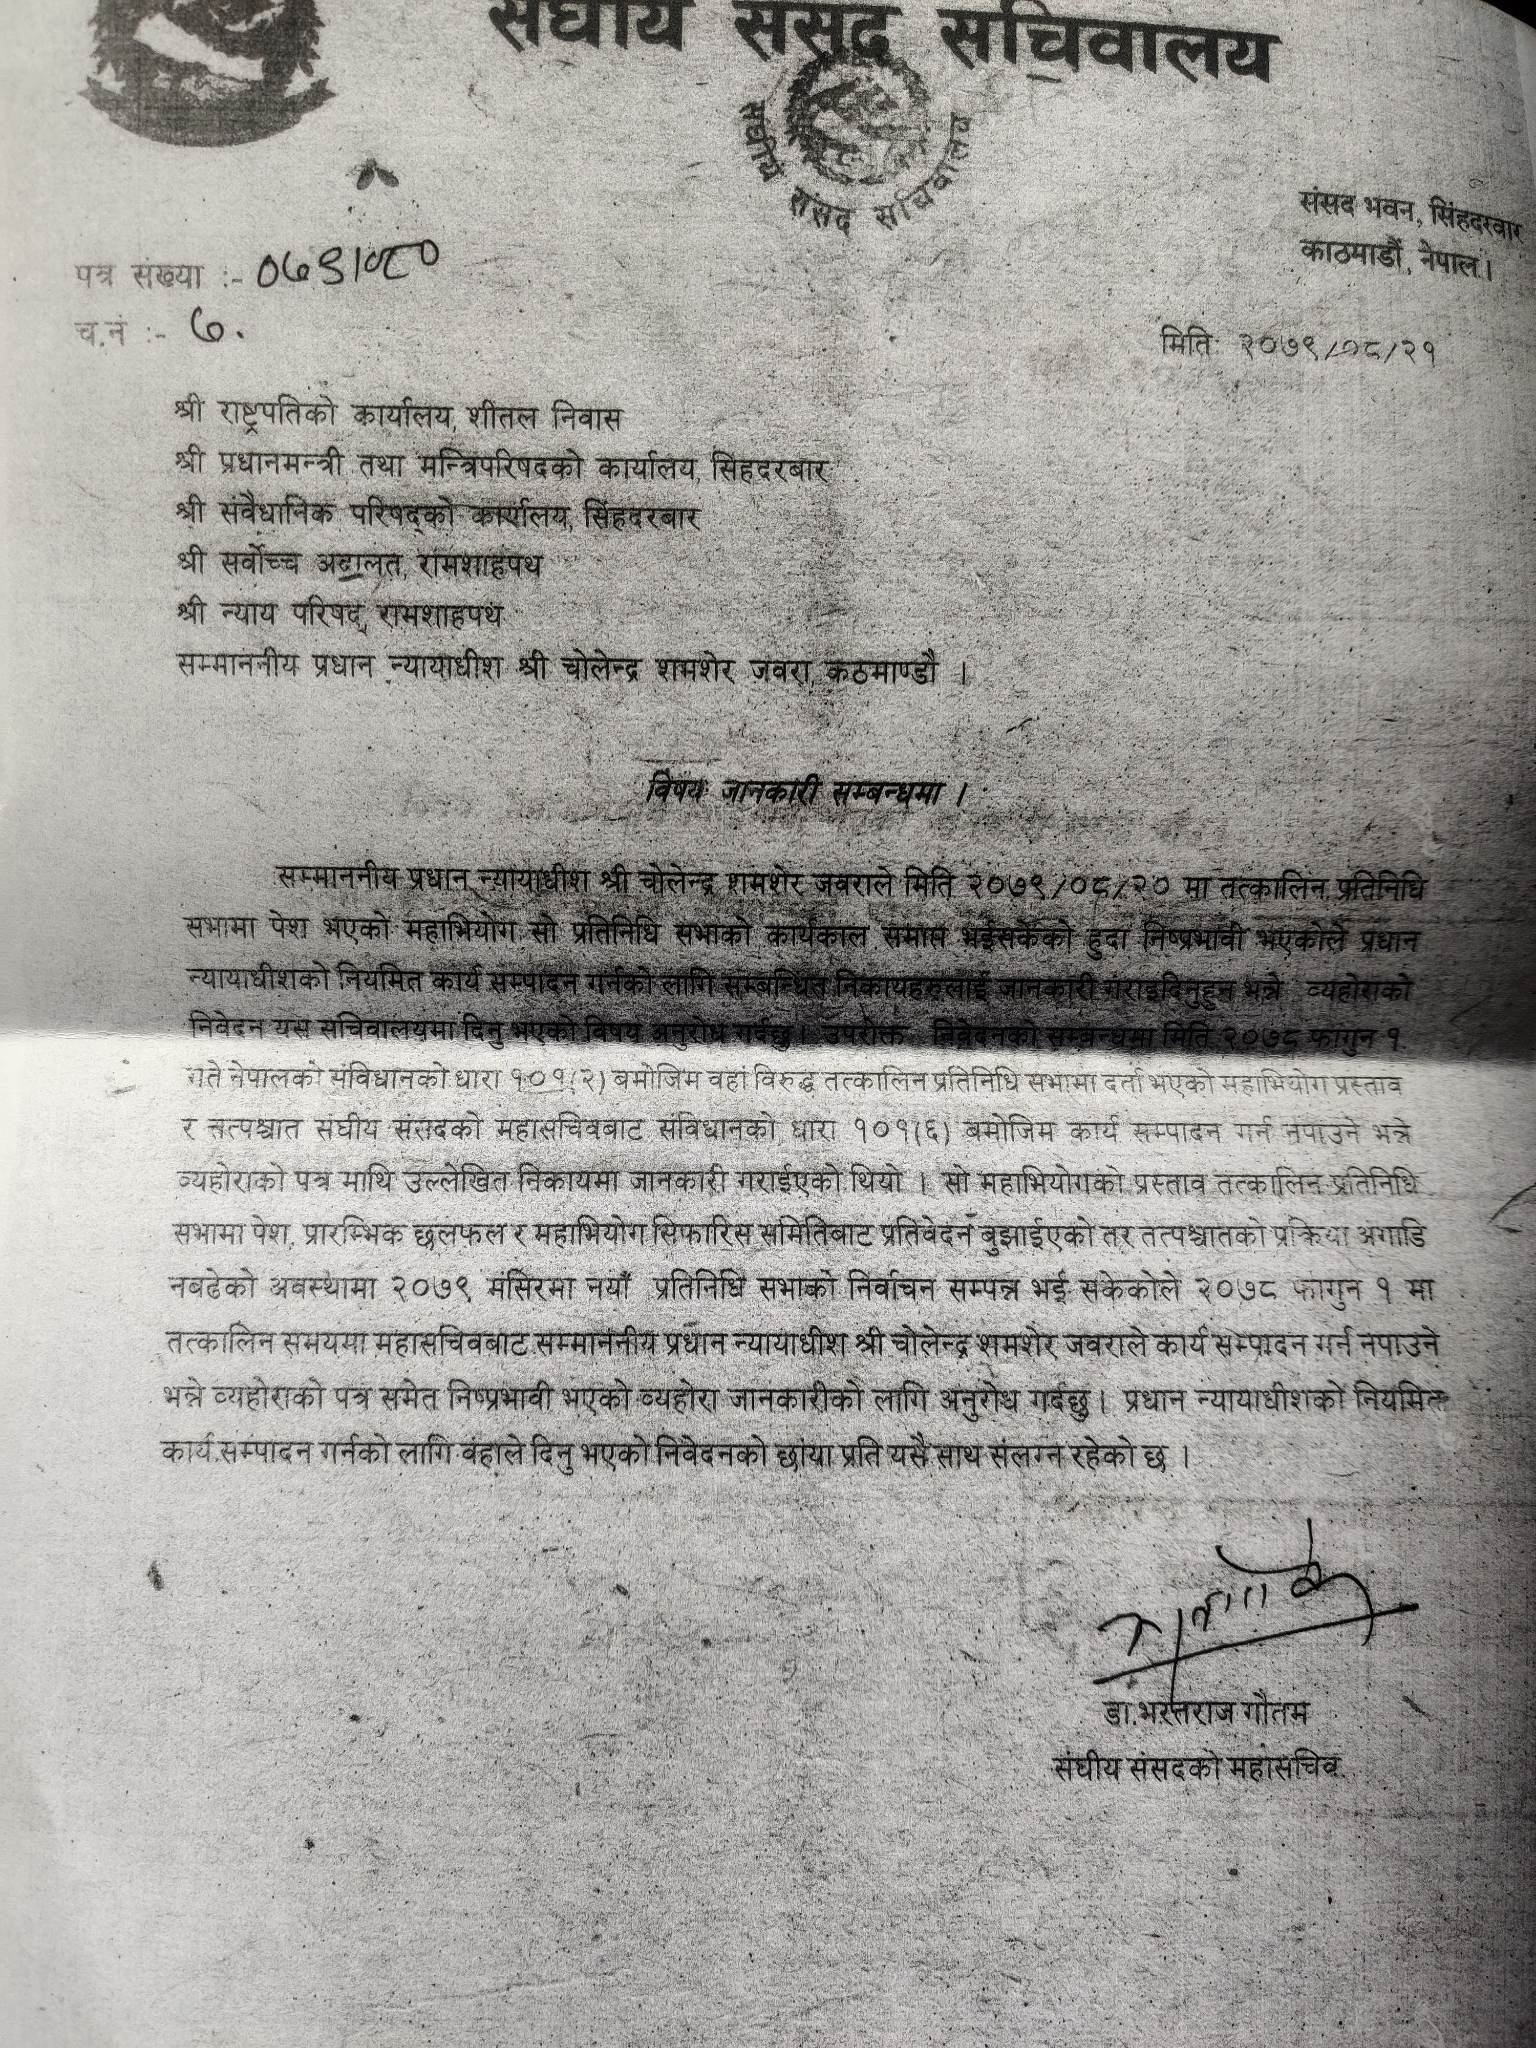 संघीय संसद सचिवालय
संघीय संसद सचिवालय
संसद भवन, सिंहदरवार
काठमाडौं, नेपाल।
पत्र संख्या :- ०७९।०८०
च.नं :- ७.
मितिः २०७९/०८/२१
श्री राष्ट्रपतिको कार्यालय, शीतल निवास
श्री प्रधानमन्त्री तथा मन्त्रिपरिषदको कार्यालय, सिंहदरबार
श्री संवैधानिक परिषद्को कार्यालय, सिंहदरबार
श्री सर्वोच्च अदालत, रामशाहपथ
श्री न्याय परिषद्, रामशाहपथ
सम्माननीय प्रधान न्यायाधीश श्री चोलेन्द्र शमशेर जवरा, कठमाण्डौ ।
विषयः जानकारी सम्बन्धमा ।
सम्माननीय प्रधान न्यायाधीश श्री चोलेन्द्र शमशेर जवराले मिति २०७९/०८/२० मा तत्कालिन प्रतिनिधि
सभामा पेश भएको महाभियोग सो प्रतिनिधि सभाको कार्यकाल समाप्त भईसकेको हुदा निष्प्रभावी भएकोले प्रधान
न्यायाधीशको नियमित कार्य सम्पादन गर्नको लागि सम्बन्धित निकायहरुलाई जानकारी गराइदिनुहुन भन्ने व्यहोराको
निवेदन यस सचिवालयमा दिनु भएको विषय अनुरोध गर्दछु। उपरोक्त निवेदनको सम्बन्धमा मिति २०७८ फागुन १
गते नेपालको संविधानको धारा १०१(२) बमोजिम वहां विरुद्ध तत्कालिन प्रतिनिधि सभामा दर्ता भएको महाभियोग प्रस्ताव
र तत्पश्चात संघीय संसदको महासचिवबाट संविधानको धारा १०१(६) बमोजिम कार्य सम्पादन गर्न नपाउने भन्ने
व्यहोराको पत्र माथि उल्लेखित निकायमा जानकारी गराईएको थियो । सो महाभियोगको प्रस्ताव तत्कालिन प्रतिनिधि
सभामा पेश, प्रारम्भिक छलफल र महाभियोग सिफारिस समितिबाट प्रतिवेदन बुझाईएको तर तत्पश्चातको प्रक्रिया अगाडि
नबढेको अवस्थामा २०७९ मंसिरमा नयाँ प्रतिनिधि सभाको निर्वाचन सम्पन्न भई सकेकोले २०७८ फागुन १ मा
तत्कालिन समयमा महासचिवबाट सम्माननीय प्रधान न्यायाधीश श्री चोलेन्द्र शमशेर जवराले कार्य सम्पादन गर्न नपाउने
भन्ने व्यहोराको पत्र समेत निष्प्रभावी भएको व्यहोरा जानकारीको लागि अनुरोध गर्दछु। प्रधान न्यायाधीशको नियमित
कार्य सम्पादन गर्नको लागि वंहाले दिनु भएको निवेदनको छांया प्रति यसै साथ संलग्न रहेको छ ।
डा.भरतराज गौतम
संघीय संसदको महासचिव